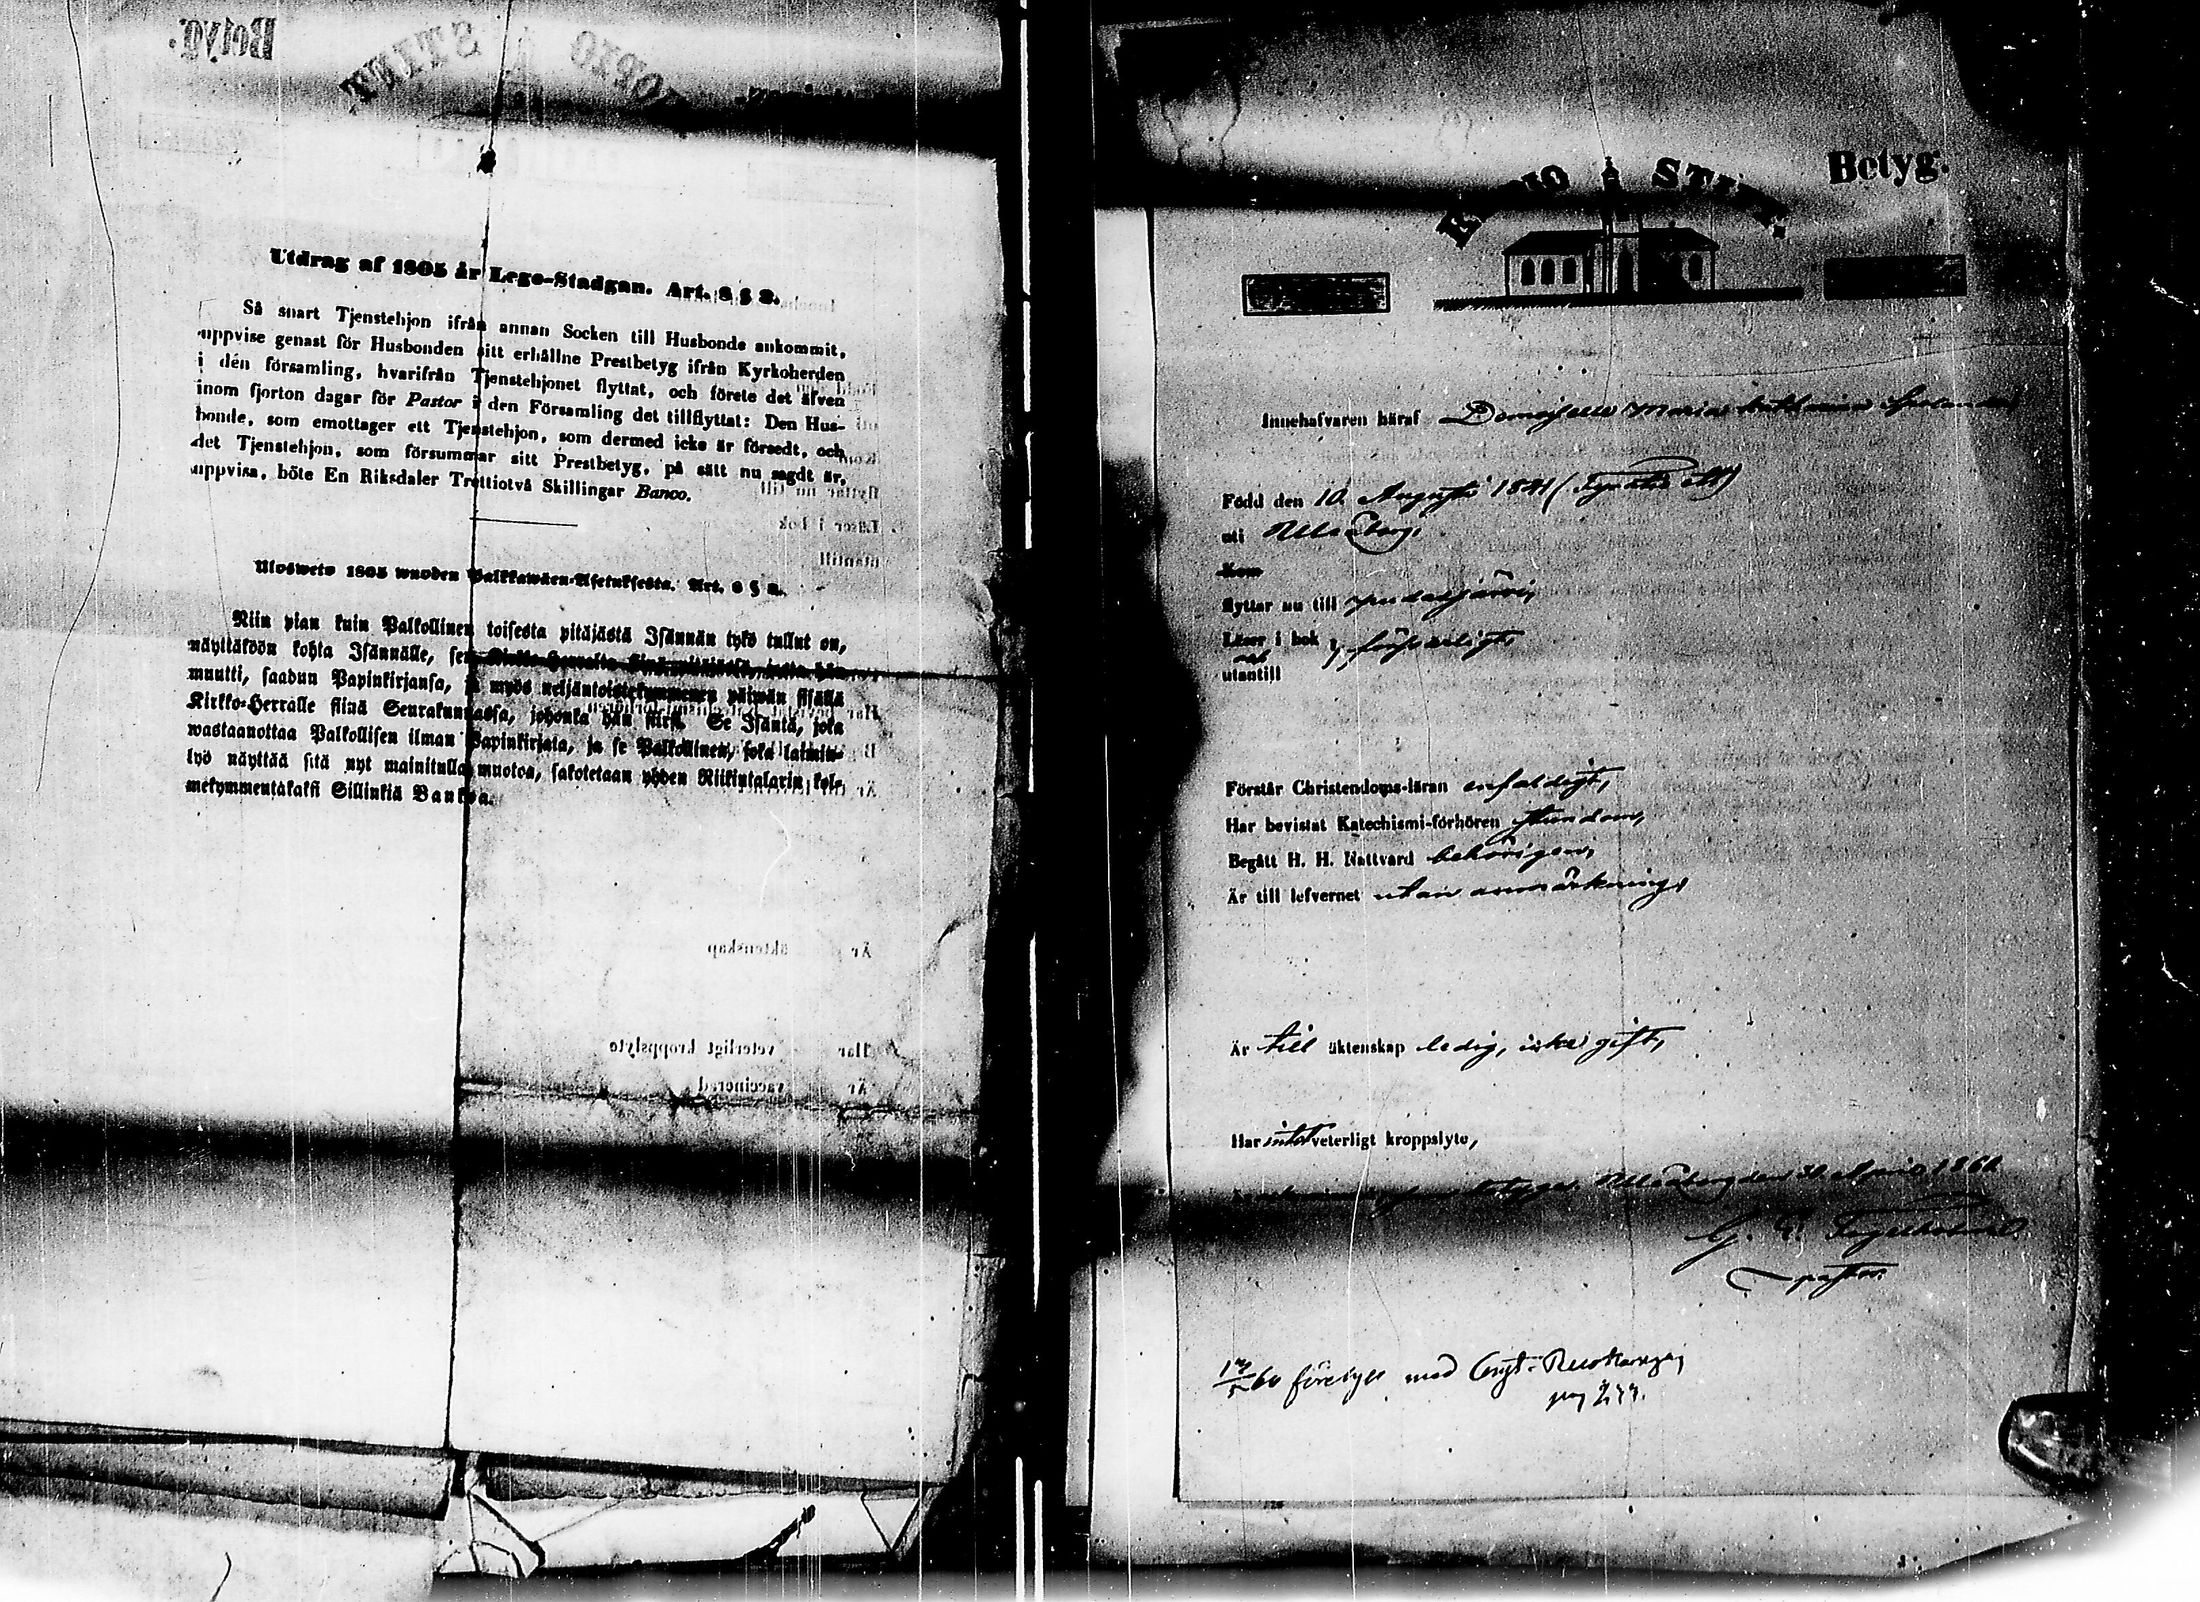 Utdrag af 1805 år Lego-Stadgan. Art. 8 § 2.
Så snart Tjenstehjon ifrån annan Socken till Husbonde ankommit,
uppvise genast för Husbonden sitt erhållne Prestbetyg ifrån Kyrkoherden
i den församling, hvarifrån Tjenstehjonet flyttat, och förete det äfven
inom fjorton dagar för Pastor i den Församling det tillflyttat: Den Hus-
bonde, som emottager ett Tjenstehjon, som dermed icke är försedt, och
det Tjenstehjon, som försummar sitt Prestbetyg, på sätt nu sagdt är,
uppvisa, böte En Riksdaler Trettiotvå Skillingar Banco.
Ulosweto 1805 wuoden Palkkawäen-Asetuksesta. Art. 8 § 2.
Niin pian kuin Palkollinen toisesta pitäjästä Isännän tykö tullut on,
näyttäköön kohta Isännälle, sen Kirkko-Herralta siinä pitäjässä, josta hän
muutti, saadun Papinkirjansa, ja myös neljäntoistakymmenen päiwän sisällä
Kirkko-Herralle siinä Seurakunnassa, johonka hän siirsi. Se Isäntä, joka
wastaanottaa Palkollisen ilman Papinkirjata, ja se Palkollinen, joka laimin-
lyö näyttää sitä nyt mainitulla muotoa, sakotetaan yhden Riikintalarin kol-
mekymmentäkaksi Sillinkiä Bankoa.
KUOPIO STIFT. Betyg.
Innehafvaren häraf Demoiselle Maria Catharina
Född den 10 Augusti 1841
uti Uleåborg,
Kom
flyttar nu till Pudasjärvi,
Läser i bok försvarligt,
utantill
Förstår Christendoms-läran enfaldigt,
Har bevistat Katechismi-förhören stundom,
Begått H. H. Nattvard behörigen,
Är till lefvernet utan anmärkning,
Är till äktenskap ledig, icke gift,
Har intet veterligt kroppslyte,
betygar. Uleåborg den April 186
pastor.
med